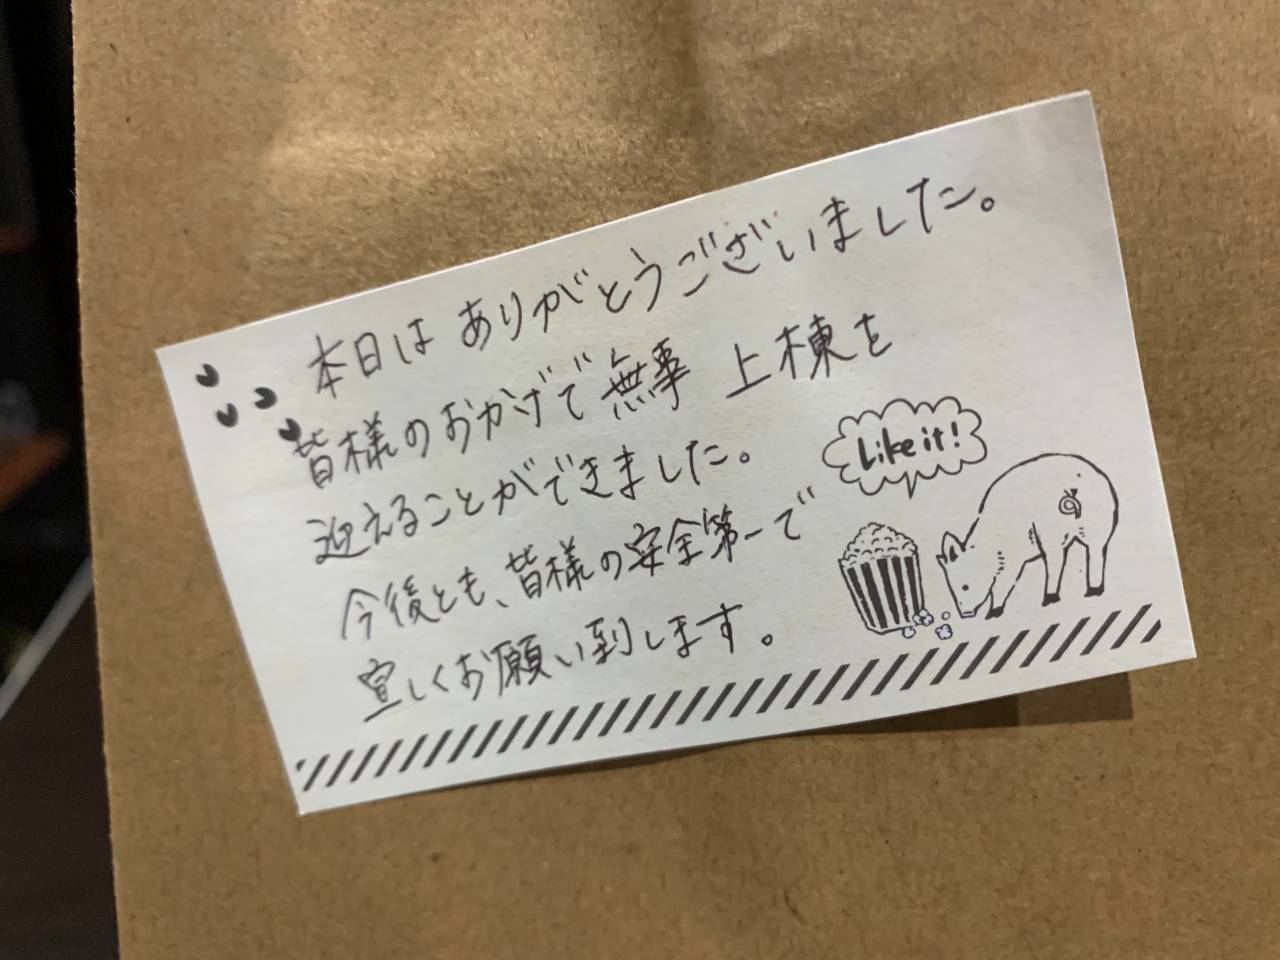 本日は ありがとうございました。
皆様のおかげで無事 上棟を
迎えることができました。
今後とも、皆様の安全第一で
宜しくお願い到します。
Like it!